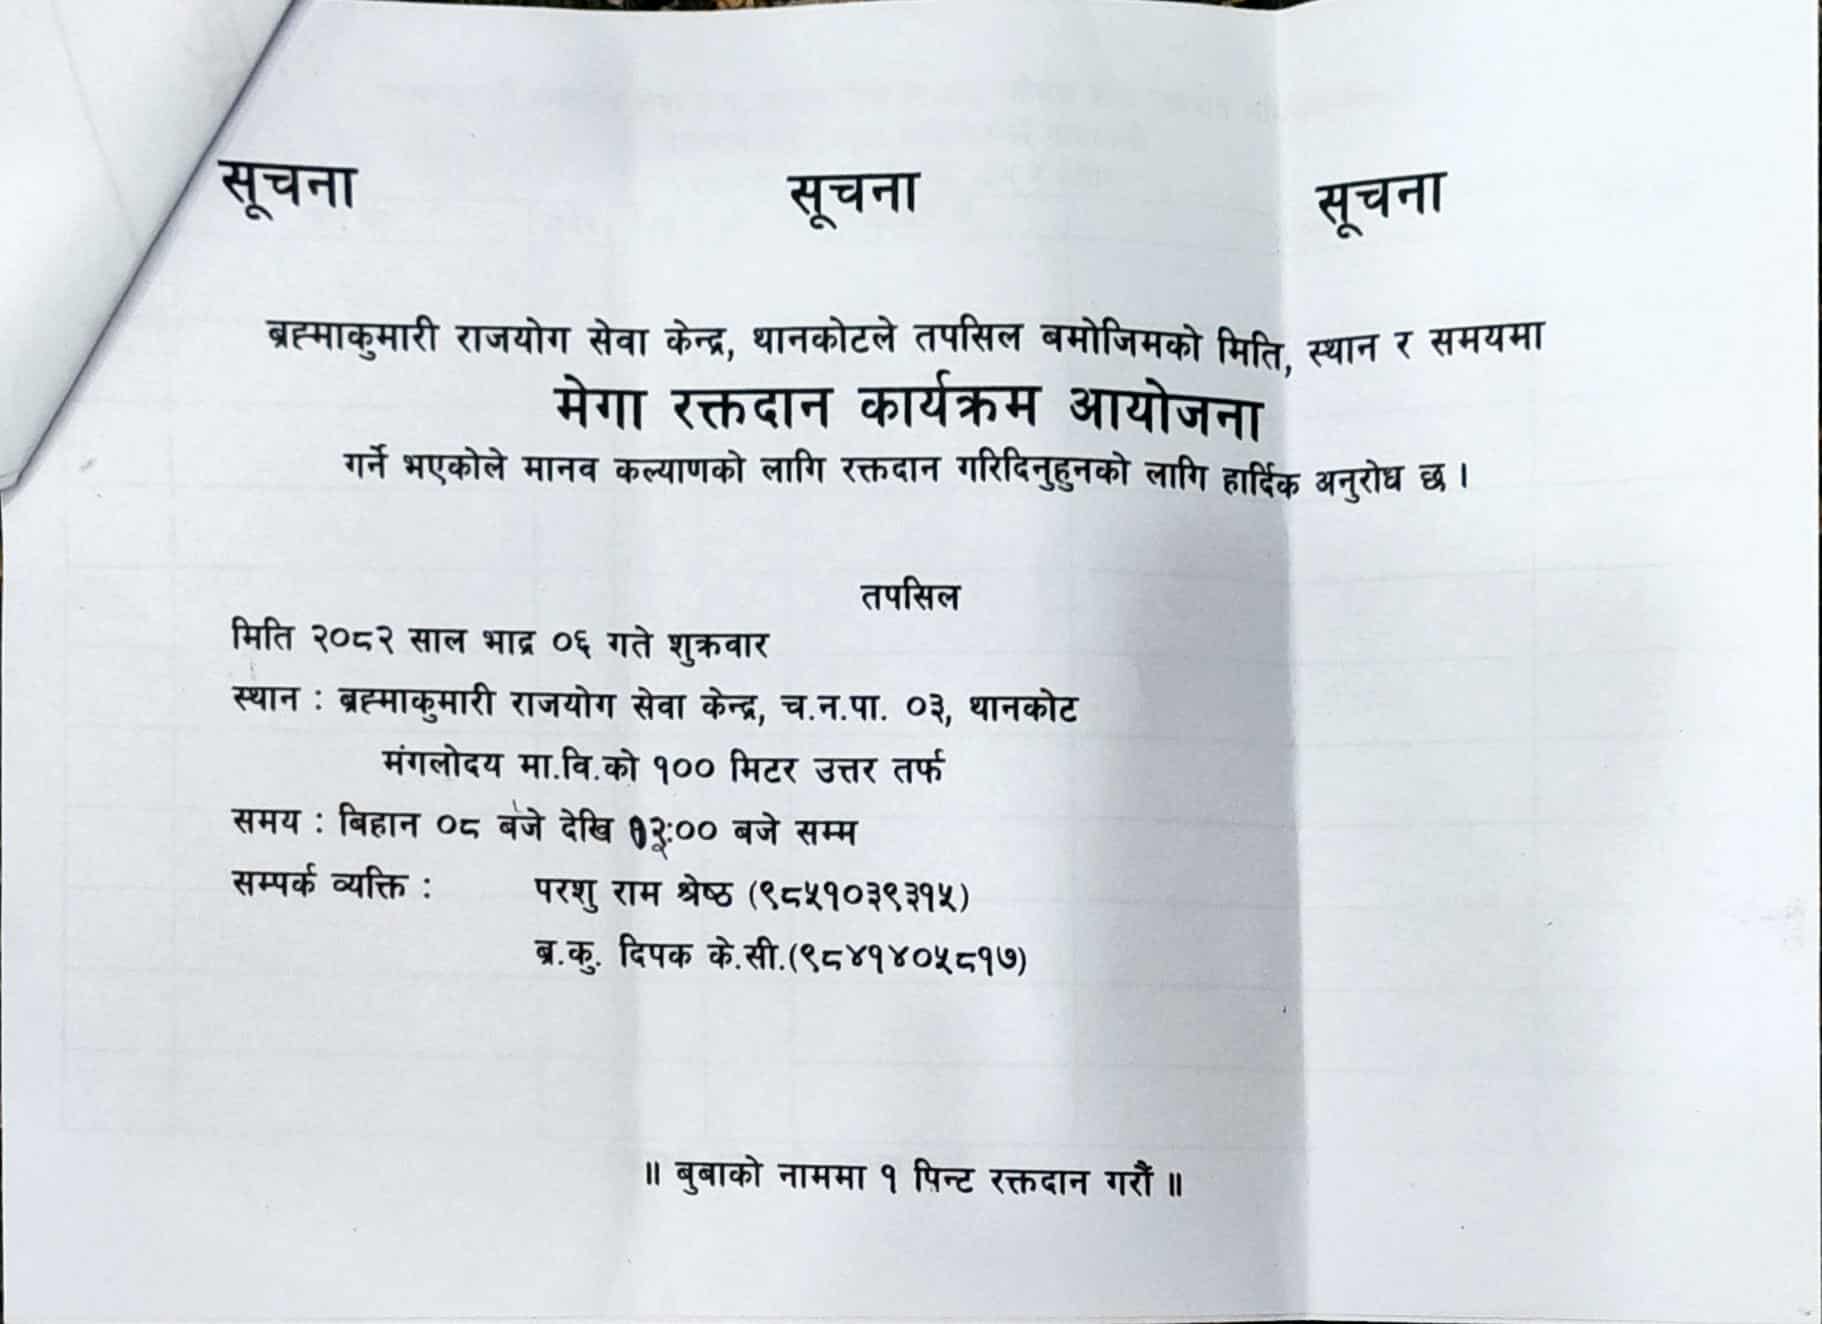 सूचना सूचना सूचना
ब्रह्माकुमारी राजयोग सेवा केन्द्र, थानकोटले तपसिल बमोजिमको मिति, स्थान र समयमा
मेगा रक्तदान कार्यक्रम आयोजना
गर्ने भएकोले मानव कल्याणको लागि रक्तदान गरिदिनुहुनको लागि हार्दिक अनुरोध छ ।
तपसिल
मिति २०८२ साल भाद्र ०६ गते शुक्रवार
स्थान : ब्रह्माकुमारी राजयोग सेवा केन्द्र, च.न.पा. ०३, थानकोट
मंगलोदय मा.वि.को १०० मिटर उत्तर तर्फ
समय : बिहान ०८ बजे देखि :०० बजे सम्म
सम्पर्क व्यक्ति : परशु राम श्रेष्ठ (९८५१०३९३१५)
ब्र.कु. दिपक के.सी.(९८४१४०५८१७)
॥ बुबाको नाममा १ पिन्ट रक्तदान गरौं ॥